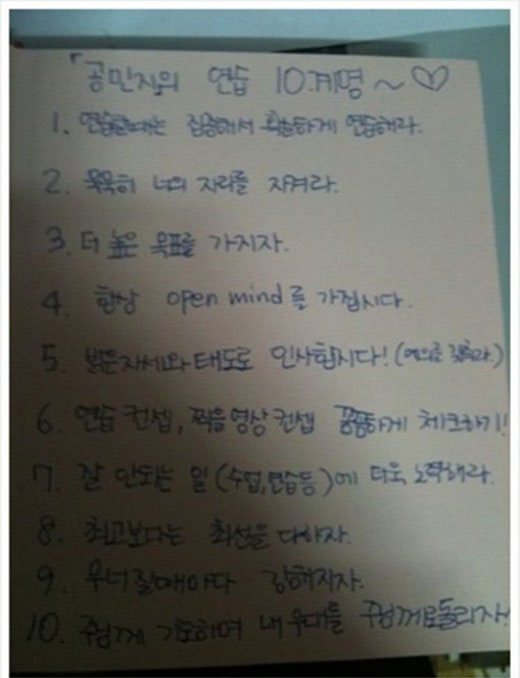 「공민지의 연습 10.계명~♡
1. 연습할때는 집중해서 확실하게 연습해라.
2. 묵묵히 너의 자리를 지켜라.
3. 더 높은 목표를 가지자.
4. 항상 open mind를 가집시다.
5. 밝은자세와 태도로 인사합시다! (예의를 갖춰라.)
6. 연습 컨셉, 찍을영상컨셉 꼼꼼하게 체크하기!
7. 잘 안되는 일 (수업,연습등)에 더욱 노력해라.
8. 최고보다는 최선을 다하자.
9. 무너질때마다 강해지자.
10. 주님께 기도하며 내 무대를 주님께로돌리자!